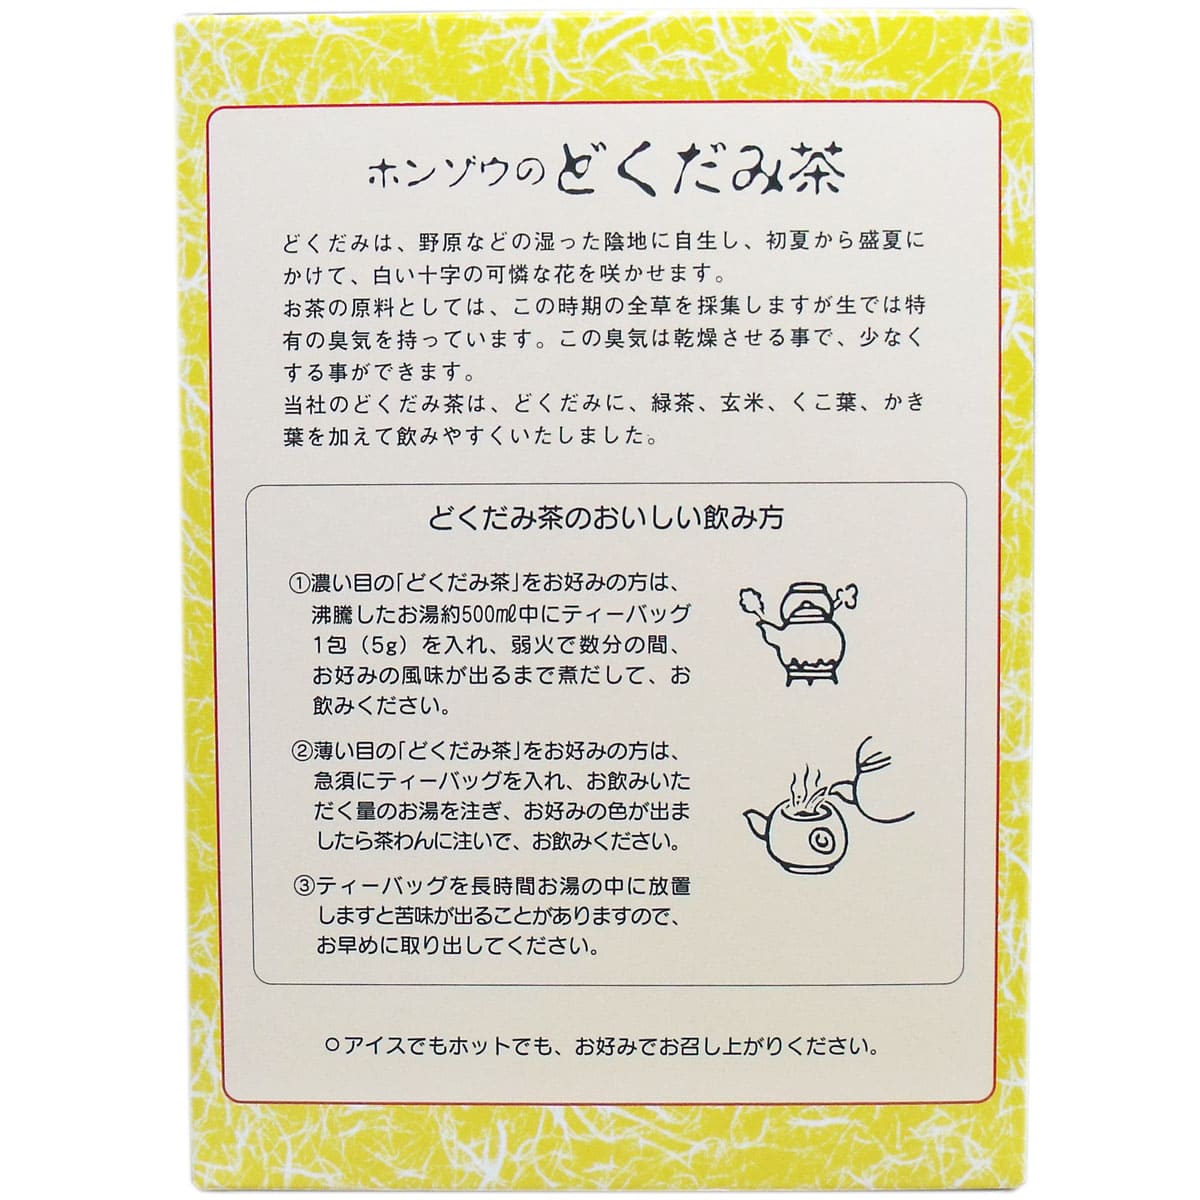 ホンゾウのどくだみ茶
どくだみは、野原などの湿った陰地に自生し、初夏から盛夏に
かけて、白い十字の可憐な花を咲かせます。
お茶の原料としては、この時期の全草を採集しますが生では特
有の臭気を持っています。この臭気は乾燥させる事で、少なく
する事ができます。
当社のどくだみ茶は、どくだみに、緑茶、玄米、くこ葉、かき
葉を加えて飲みやすくいたしました。
どくだみ茶のおいしい飲み方
①濃い目の「どくだみ茶」をお好みの方は、
沸騰したお湯約500㎖中にティーバッグ
1包（5g）を入れ、弱火で数分の間、
お好みの風味が出るまで煮だして、お
飲みください。
②薄い目の「どくだみ茶」をお好みの方は、
急須にティーバッグを入れ、お飲みいた
だく量のお湯を注ぎ、お好みの色が出ま
したら茶わんに注いで、お飲みください。
③ティーバッグを長時間お湯の中に放置
しますと苦味が出ることがありますので、
お早めに取り出してください。
○アイスでもホットでも、お好みでお召し上がりください。